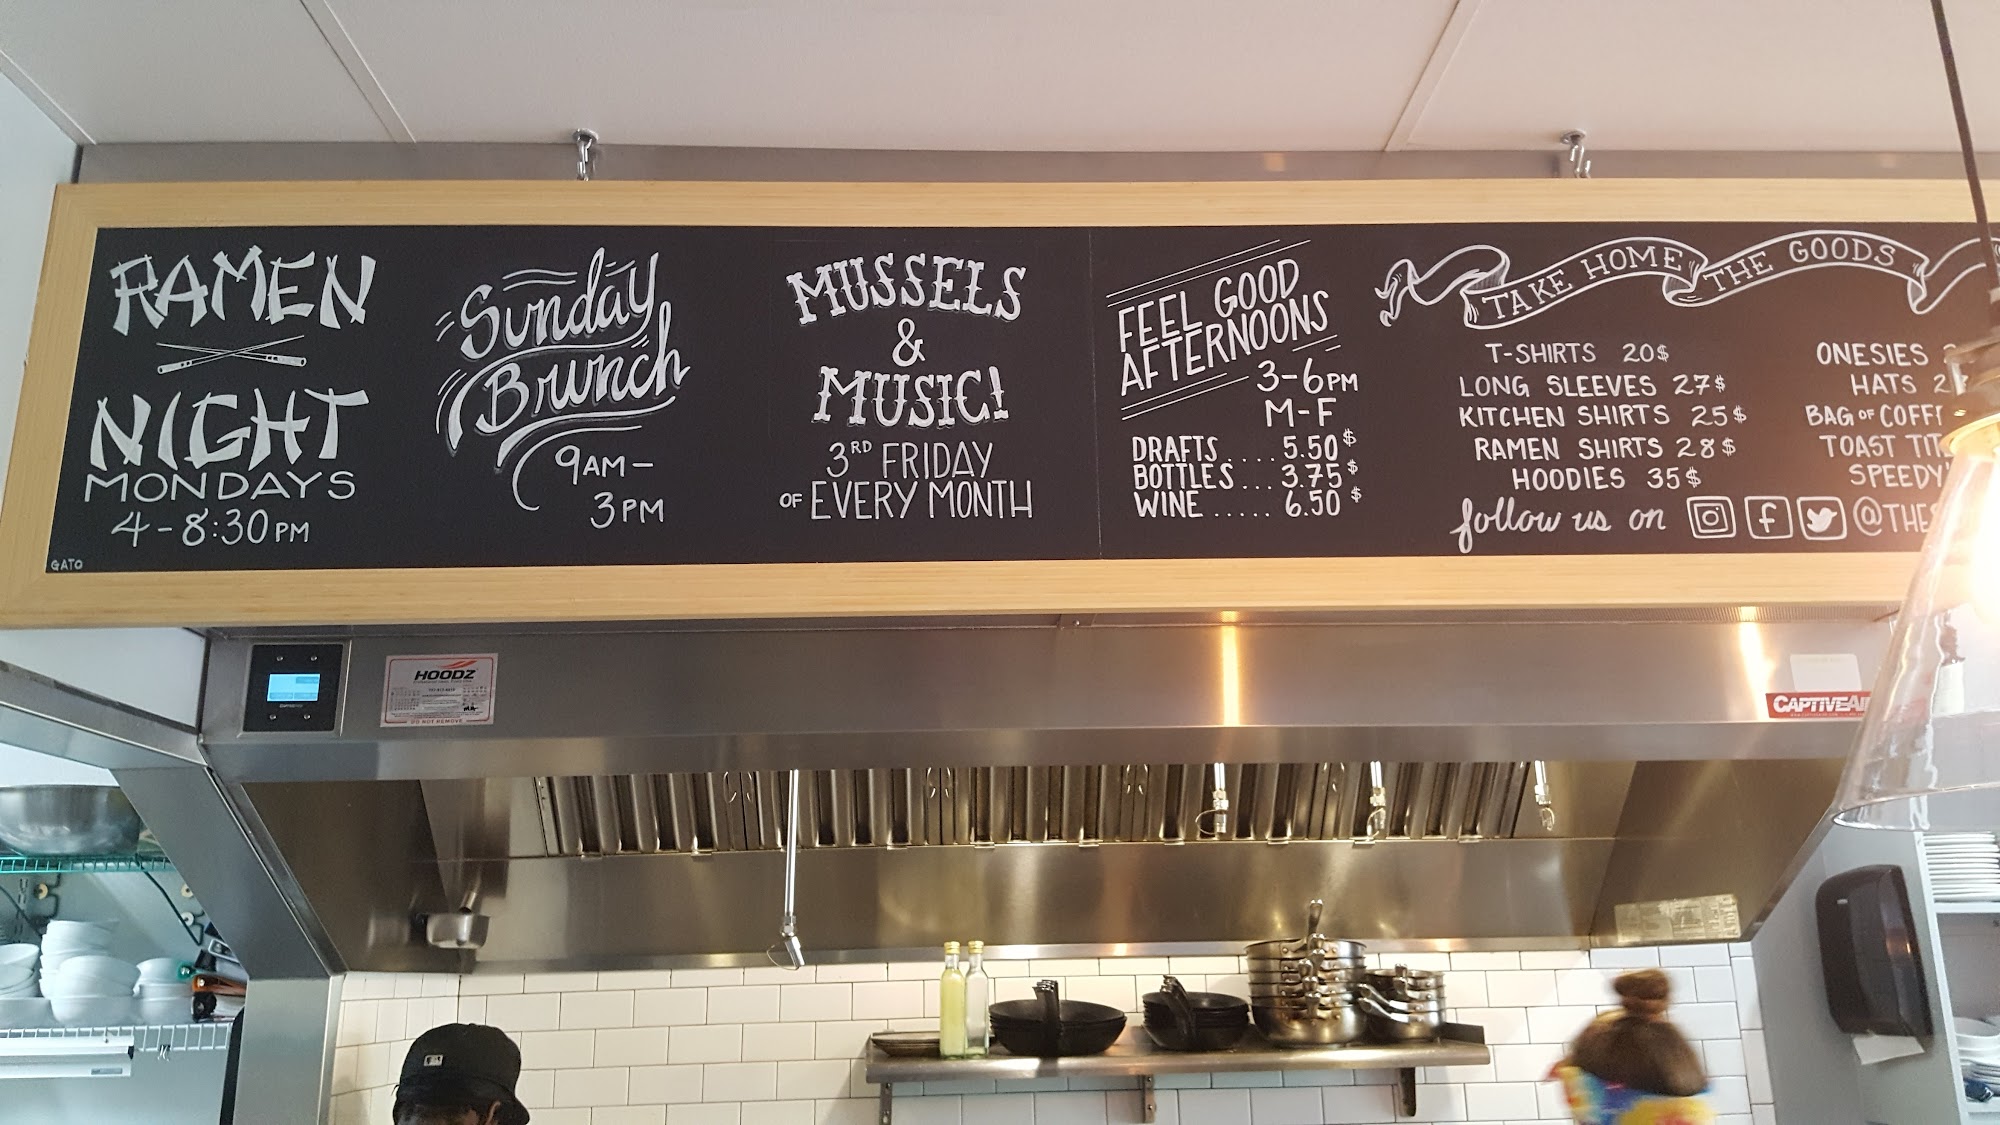 RAMEN
NIGHT
MONDAYS
4-8:30PM
GATO
Sunday
Brunch
9AM-
3PM
MUSSELS
&
MUSIC!
3RD FRIDAY
OF EVERY MONTH
FEEL GOOD
AFTERNOONS
3-6PM
M-F
DRAFTS....5.50$
BOTTLES...3.75$
WINE.....6.50$
TAKE HOME THE GOODS
T-SHIRTS 20$
LONG SLEEVES 27$
KITCHEN SHIRTS 25$
RAMEN SHIRTS 28$
HOODIES 35$
ONESIES
HATS
BAG OF
TOAST
follow us on
HOODZ
DO NOT REMOVE